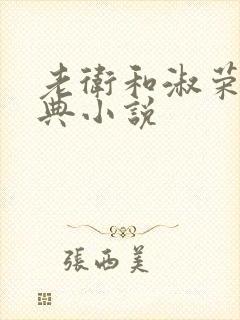 老衛和淑荣
典小說
張西美